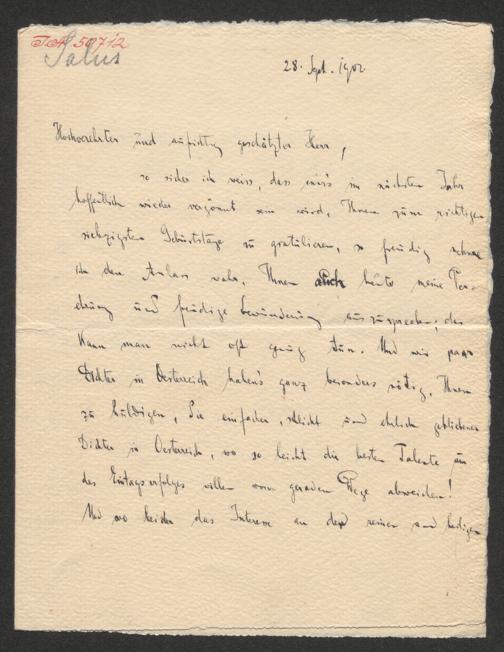 J.N. 50712
Salus
28. Sept. 1902
Hochverehrter und aufrichtig geschätzter Herr,
so sicher ich weiss, dass mir's im nächsten Jahr
hoffentlich wieder vergönnt sein wird, Ihnen zum richtigen
siebzigsten Geburtstage zu gratulieren, so freudig nehme
ich den Anlass wahr, Ihnen auch heute meine Ver-
ehrung und freudige Bewunderung auszusprechen; das
kann man nicht oft genug tun. Und wir paar
Dichter in Oesterreich haben's ganz besonders nötig, Ihnen
zu huldigen, Sie einfacher, schlicht und ehrlich gebliebener
Dichter in Oesterreich, wo so leicht die besten Talente um
des Eintagserfolges willen vom geraden Wege abweichen!
Und wo leider das Interesse an der reinen und heiligen